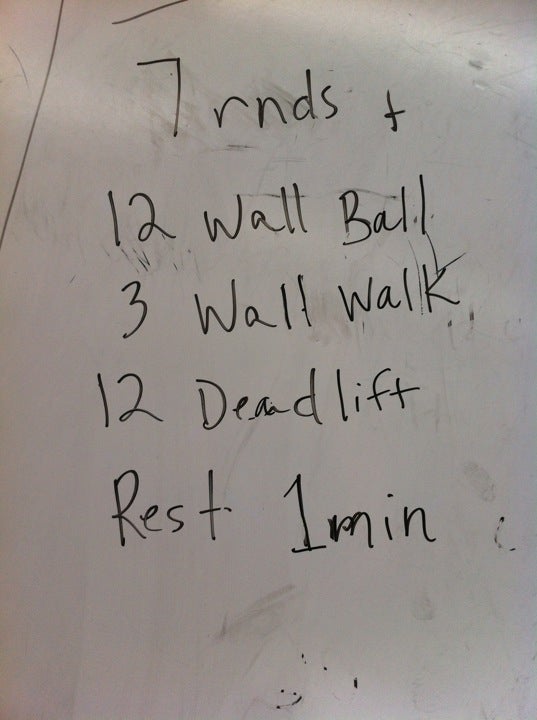 7 rnds +
12 Wall Ball
3 Wall Walk
12 Deadlift
Rest 1min